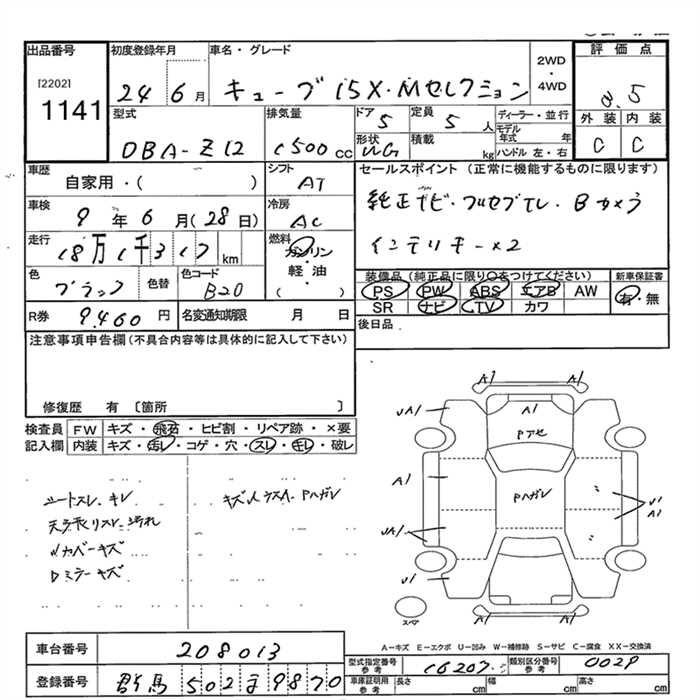 出品番号 初度登録年月 車名・グレード 2WD・4WD 評価点
[2202]
1141
24 6月 キューブ 15X・Mセレクション 3.5
型式 排気量 ドア 5 定員 5人 ディーラー・並行 外装 内装
DBA-Z12 1500cc 形状 WG 積載 kg モデル年式 年 ハンドル 左・右 C C
車歴 自家用・( ) シフト AT セールスポイント (正常に機能するものに限ります)
車検 9年6月(28日) 冷房 AC 純正ナビ・フルセグTV・Bカメラ
走行 18万1千317km 燃料 ガソリン・軽・油 ( ) インテリキー×2
色 ブラック 色替 色コード B20 装備品 (純正品に限り○をつけてください) 新車保証書
PS PW ABS エアB AW 有・無
SR ナビ TV カワ
R券 9,460円 名変通知期限 月 日 後日品
注意事項申告欄(不具合内容等は具体的に記入して下さい)
修復歴 有 〔箇所 〕
検査員 FW キズ・飛石・ヒビ割・リペア跡・×要
記入欄 内装 キズ・汚レ・コゲ・穴・スレ・キレ・破レ
シートスレ、キレ
キズ、Pハガレ
天張リスレ、汚れ
カバーキズ
ミラーキズ
A1 A1
UA1 A1 A1
Pアセ
A1 Pハガレ U1
A1
UA1
U1
スペア A1 A1
A-キズ E-エクボ U-凹み W-補修跡 S-サビ C-腐食 XX-交換済
車台番号 208013
型式指定番号 参考 16207 類別区分番号 参考 0029
登録番号 群馬 502 9870 車庫証明用 参考 長さ cm 幅 cm 高さ cm